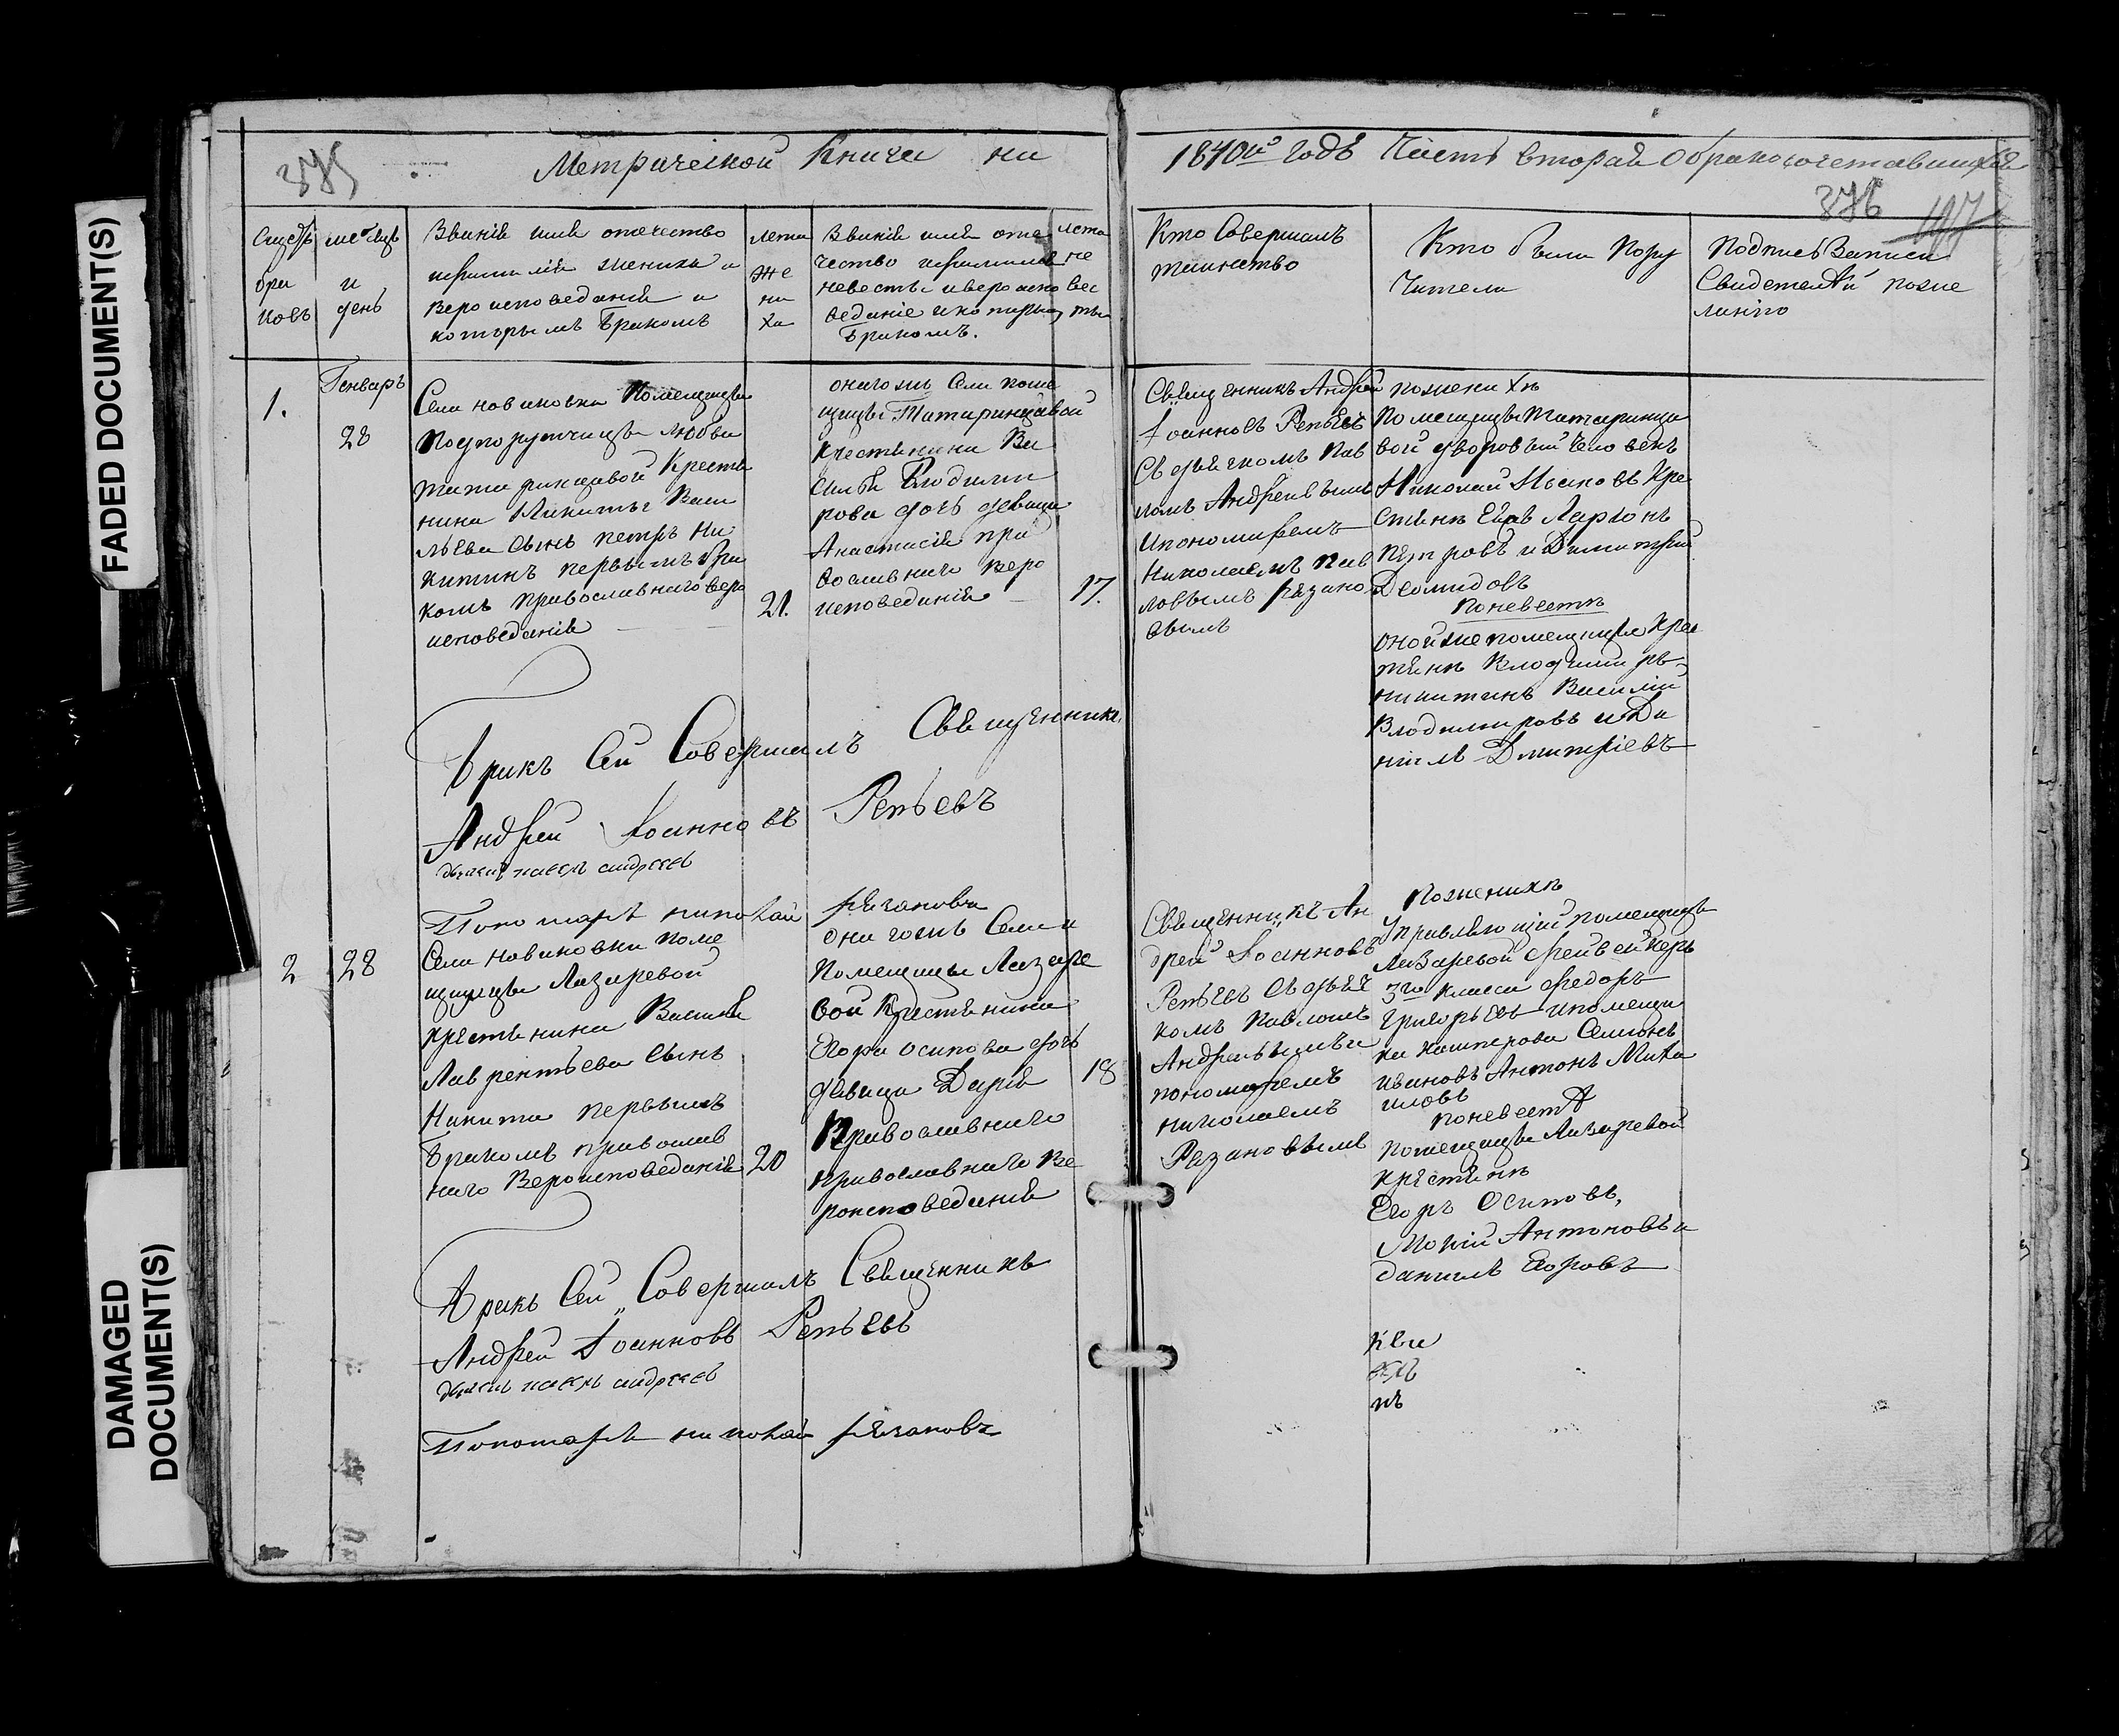 FADED DOCUMENT(S)
DAMAGED
DOCUMENT(S)
375
Метрической Книги на
1840й годъ Часть вторая О бракосочетавшихся
376
197
Счетъ
бра
ковъ
месяцъ
и
день
Званiе имя отечество
и фамилiя жениха и
Вероисповеданiя и
которымъ бракомъ
лета
же
ни
ха
Званiе имя оте
чество и фамилiя
невесты и вероиспо
веданiе и которым
бракомъ.
лета
не
вес
ты
Кто Совершалъ
таинство
Кто были Пору
чители
Подпись Записи
Свидетелей по же
ланiю
1.
Генварь
28
Села новиновки Помещицы
Подпоручицы Любви
татаринцовой Крестья
нина Никиты Васи
льева Сынъ петръ Ни
китинъ первымъ бра
комъ православнаго веро
исповеданiя
21.
онагожъ Села поме
щицы Татаринцовой
Крестьянина Ва
силья Влодими
рова дочь девица
Анастасiя пра
вославнаго веро
исповеданiя
17.
Священникъ Андрей
Iоанновъ Репьевъ
Съ дьячкомъ Пав
ломъ Андреевымъ
и пономаремъ
Николаемъ Пав
ловымъ Рязано
вымъ
по женихе
Помещицы Татаринцо
вой дворовый человекъ
Николай Исаковъ Кре
стьяне Ларiонъ
Петровъ и Димитрий
Деомидовъ
по невесте
оной же помещицы Крес
тьяне Влодимиръ
никитинъ Василiй
Влодимировъ и Да
нiилъ Дмитрiевъ
Бракъ Сей Совершалъ Священникъ
Андрей Iоанновъ Репьевъ
дьячекъ павелъ андреевъ
Пономарь николай рязановъ
2
28
Села новиновки поме
щицы Лазаревой
крестьянина Василья
Лаврентьева Сынъ
Никита первымъ
бракомъ православ
наго Вероисповеданiя
20
онагожъ Села
Помещицы Лазаре
вой Крестьянина
Егора осипова дочь
девица Дарiя
Православнаго
православнаго Ве
роисповеданiя
18
Священникъ Ан
дрей Iоанновъ
Репьевъ Съ дьяч
комъ Павломъ
Андреевымъ и
пономаремъ
николаемъ
Рязановымъ
По женихе
Управляющiй помещицы
Лазаревой фейвейкеръ
3го класса Федоръ
Григорьевъ и помещи
ка кашперова Семионъ
ивановъ Антонъ Миха
иловъ
по невесте
Помещицы Лазаревой
крестьяне
Егоръ Осиповъ,
Мокий Антоновъ и
данилъ Егоровъ
Бракъ Сей Совершалъ Священникъ
Андрей Iоанновъ Репьевъ
дьячекъ павелъ андреевъ
Пономарь николай рязановъ